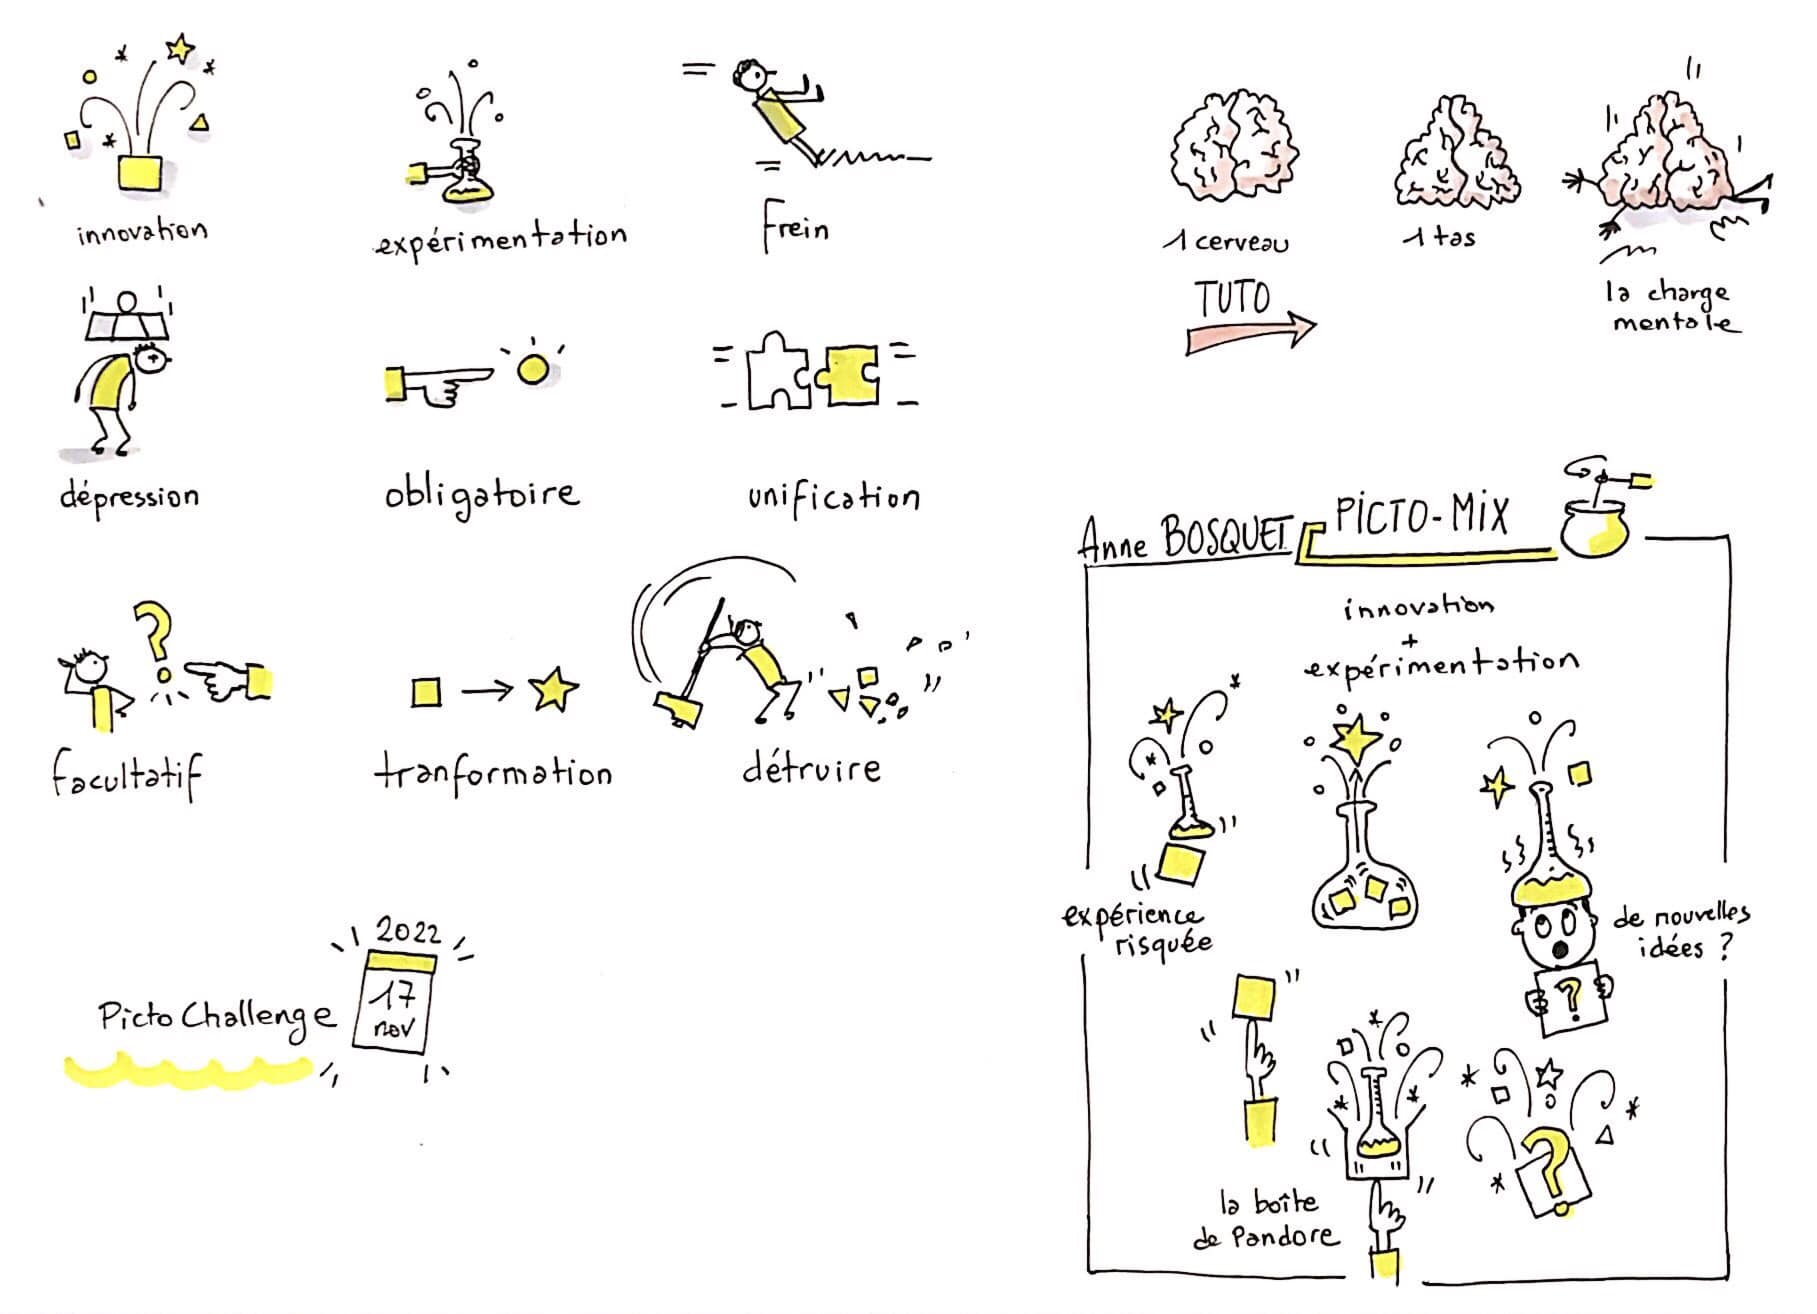 innovation
expérimentation
Frein
dépression
obligatoire
unification
facultatif
tranformation
détruire
Picto Challenge
2022
17
nov
1 cerveau
1 tas
la charge
mentale
TUTO
Anne BOSQUET
PICTO-MIX
innovation
+
expérimentation
expérience
risquée
de nouvelles
idées ?
?
la boîte
de Pandore
?